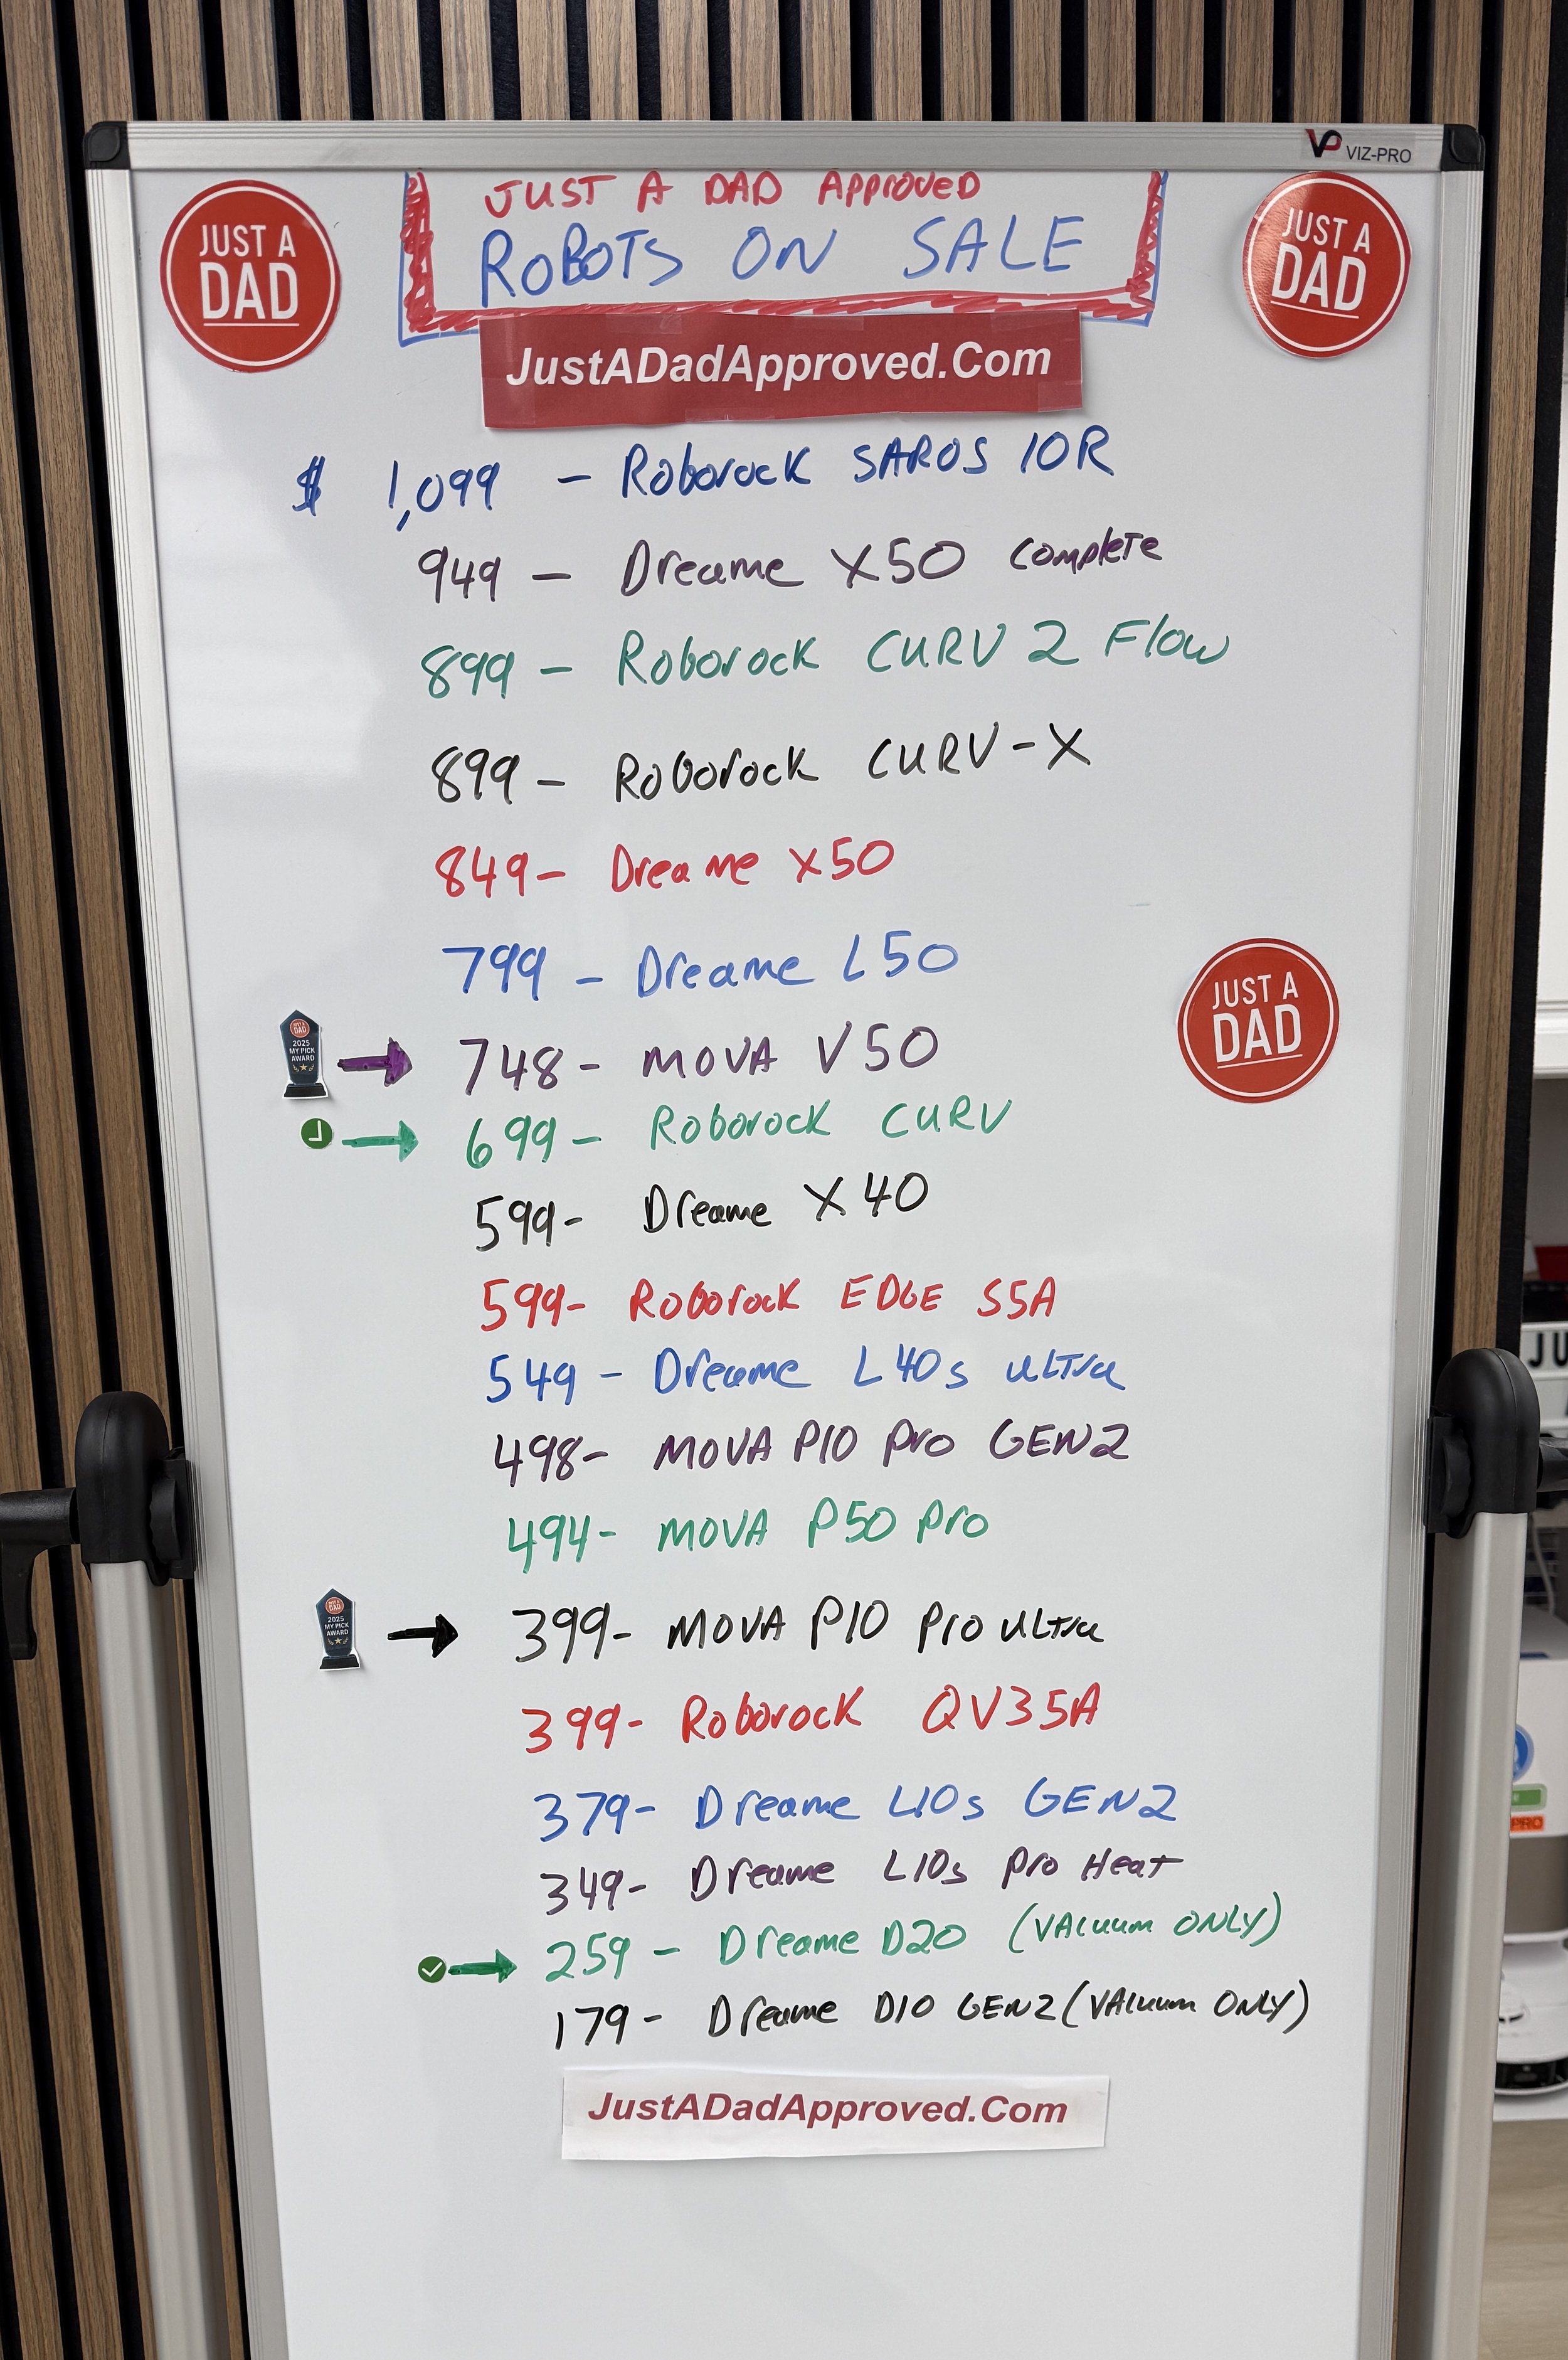 VP VIZ-PRO
JUST A DAD
JUST A DAD APPROVED
ROBOTS ON SALE
JUST A DAD
JustADadApproved.Com
$ 1,099 - Roborock SAROS 10R
949 - Dreame X50 complete
899 - Roborock CURV 2 Flow
899 - Roborock CURV-X
849- Dreame X50
799 - Dreame L50
JUST A DAD
2025 MY PICK AWARD
748- MOVA V50
699- Roborock CURV
599- Dreame X40
599- Roborock EDGE S5A
549 - Dreame L40s ULTra
498- MOVA P10 Pro GEN2
494- MOVA P50 Pro
2025 MY PICK AWARD
399- MOVA P10 Pro ULTra
399- Roborock QV35A
379- Dreame L10s GEN2
349- Dreame L10s Pro Heat
259 - Dreame D20 (VACuum ONLY)
179- Dreame D10 GEN2 (VACuum ONLY)
JustADadApproved.Com
JU
PRO